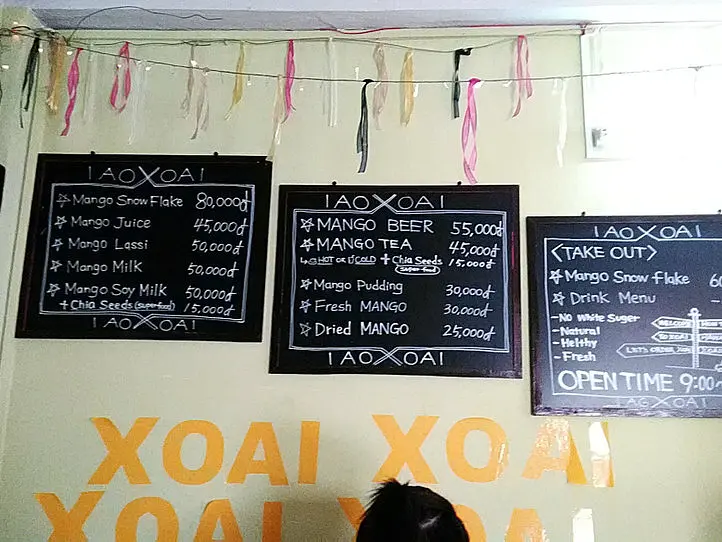 IAOXOAI
Mango Snow Flake 80,000đ
Mango Juice 45,000đ
Mango Lassi 50,000đ
Mango Milk 50,000đ
Mango Soy Milk 50,000đ
+ Chia Seeds (superfood) 15,000đ
IAOXOAI
IAOXOAI
MANGO BEER 55,000đ
MANGO TEA 45,000đ
HOT or COLD + Chia Seeds 15,000đ
Super food
Mango Pudding 30,000đ
Fresh MANGO 30,000đ
Dried MANGO 25,000đ
IAOXOAI
IAOXOAI
<TAKE OUT>
Mango Snow flake
Drink Menu
- No White Suger
- Natural
- Helthy
- Fresh
WELCOME
TO XOAI
LET'S ORDER
OPEN TIME 9:00~
IAOXOAI
XOAI XOAI
XOAI XOAI